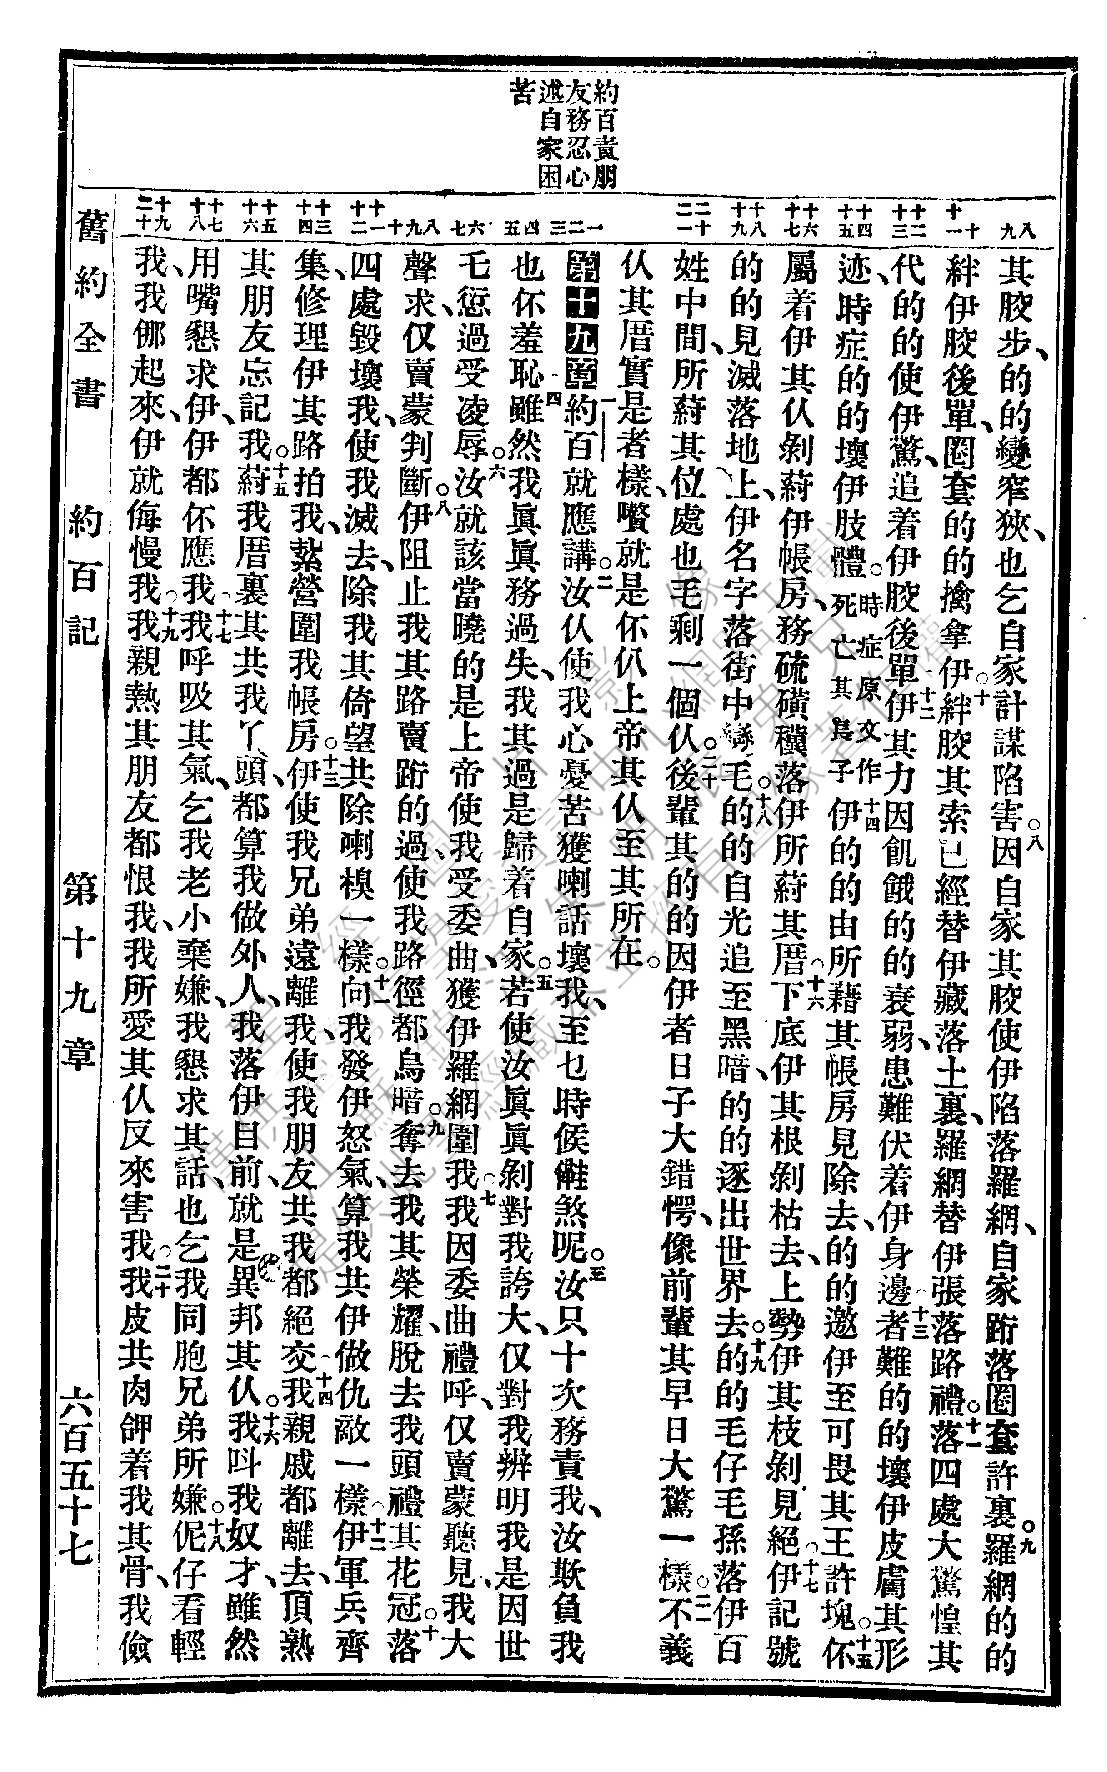 約百責朋
友務忍心
述自家困
苦
其骹步、的的變窄狹、也乞自家計謀陷害。八因自家其骹使伊陷落羅網、自家跨落圈套許裏。九羅網的的
絆伊骹後單、圈套的的擒拿伊。十絆骹其索已經替伊藏落土裏、羅網替伊張落路禮。十一落四處大驚惶其
代的的使伊驚、追着伊骹後單。十二伊其力因飢餓的的衰弱、患難伏着伊身邊。十三者難的的壞伊皮膚其形
迹、時症的的壞伊肢體。時症原文作死亡其長子十四伊的的由所藉其帳房見除去、的的邀伊至可畏其王許塊。十五伓
屬着伊其仈剝蔚伊帳房、務硫磺穳落伊所蔚其厝。十六下底伊其根剝枯去、上勢伊其枝剝見絕。十七伊記號
的的見滅落地上、伊名字落街中毛。十八的的自光追至黑暗、的的逐出世界去。十九的的毛仔毛孫落伊百
姓中間、所蔚其位處也毛剩一個仈。二十後輩其的的因伊者日子大錯愕、像前輩其早日大驚一樣。二一不義
仈其厝實是者樣、嚽就是伓仈上帝其仈至其所在。
第十九章一約百就應講。二汝仈使我心憂苦、獲喇話壞我、至乜時候煞呢。三汝只十次務責我、汝欺負我
也伓羞恥。四雖然我眞眞務過失、我其過是歸着自家。五若使汝眞眞剝對我誇大、仅對我辨明我是因世
乇愆過受凌辱。六汝就該當曉的是上帝使我受委曲、獲伊羅網圍我。七我因委曲禮呼、仅賣蒙聽見、我大
聲求、仅賣蒙判斷。八伊阻止我其路賣跨的過、使我路徑都烏暗。九奪去我其榮耀、脫去我頭禮其花冠。十落
四處毀壞我、使我滅去、除我其倚望共除喇樣一樣。十一向我發伊怒氣、算我共伊做仇敵一樣。十二伊軍兵齊
集、修理伊其路拍我、紮營圍我帳房。十三伊使我兄弟遠離我、使我朋友共我都絕交。十四我親戚都離去、頂熟
其朋友忘記我。十五蔚我厝裏其共我丫頭、都算我做外人、我落伊目前就是異邦其仈。十六我呌我奴才、雖然
用嘴懇求伊、伊都伓應我。十七我呼吸其氣、乞我老小棄嫌、我懇求其話、也乞我同胞兄弟所嫌。十八伲仔看輕
我、我㑚起來、伊就侮慢我。十九我親熱其朋友都恨我、我所愛其仈反來害我。二十我皮共肉䏲着我其骨、我儉
舊約全書　約百記　第十九章　六百五十七